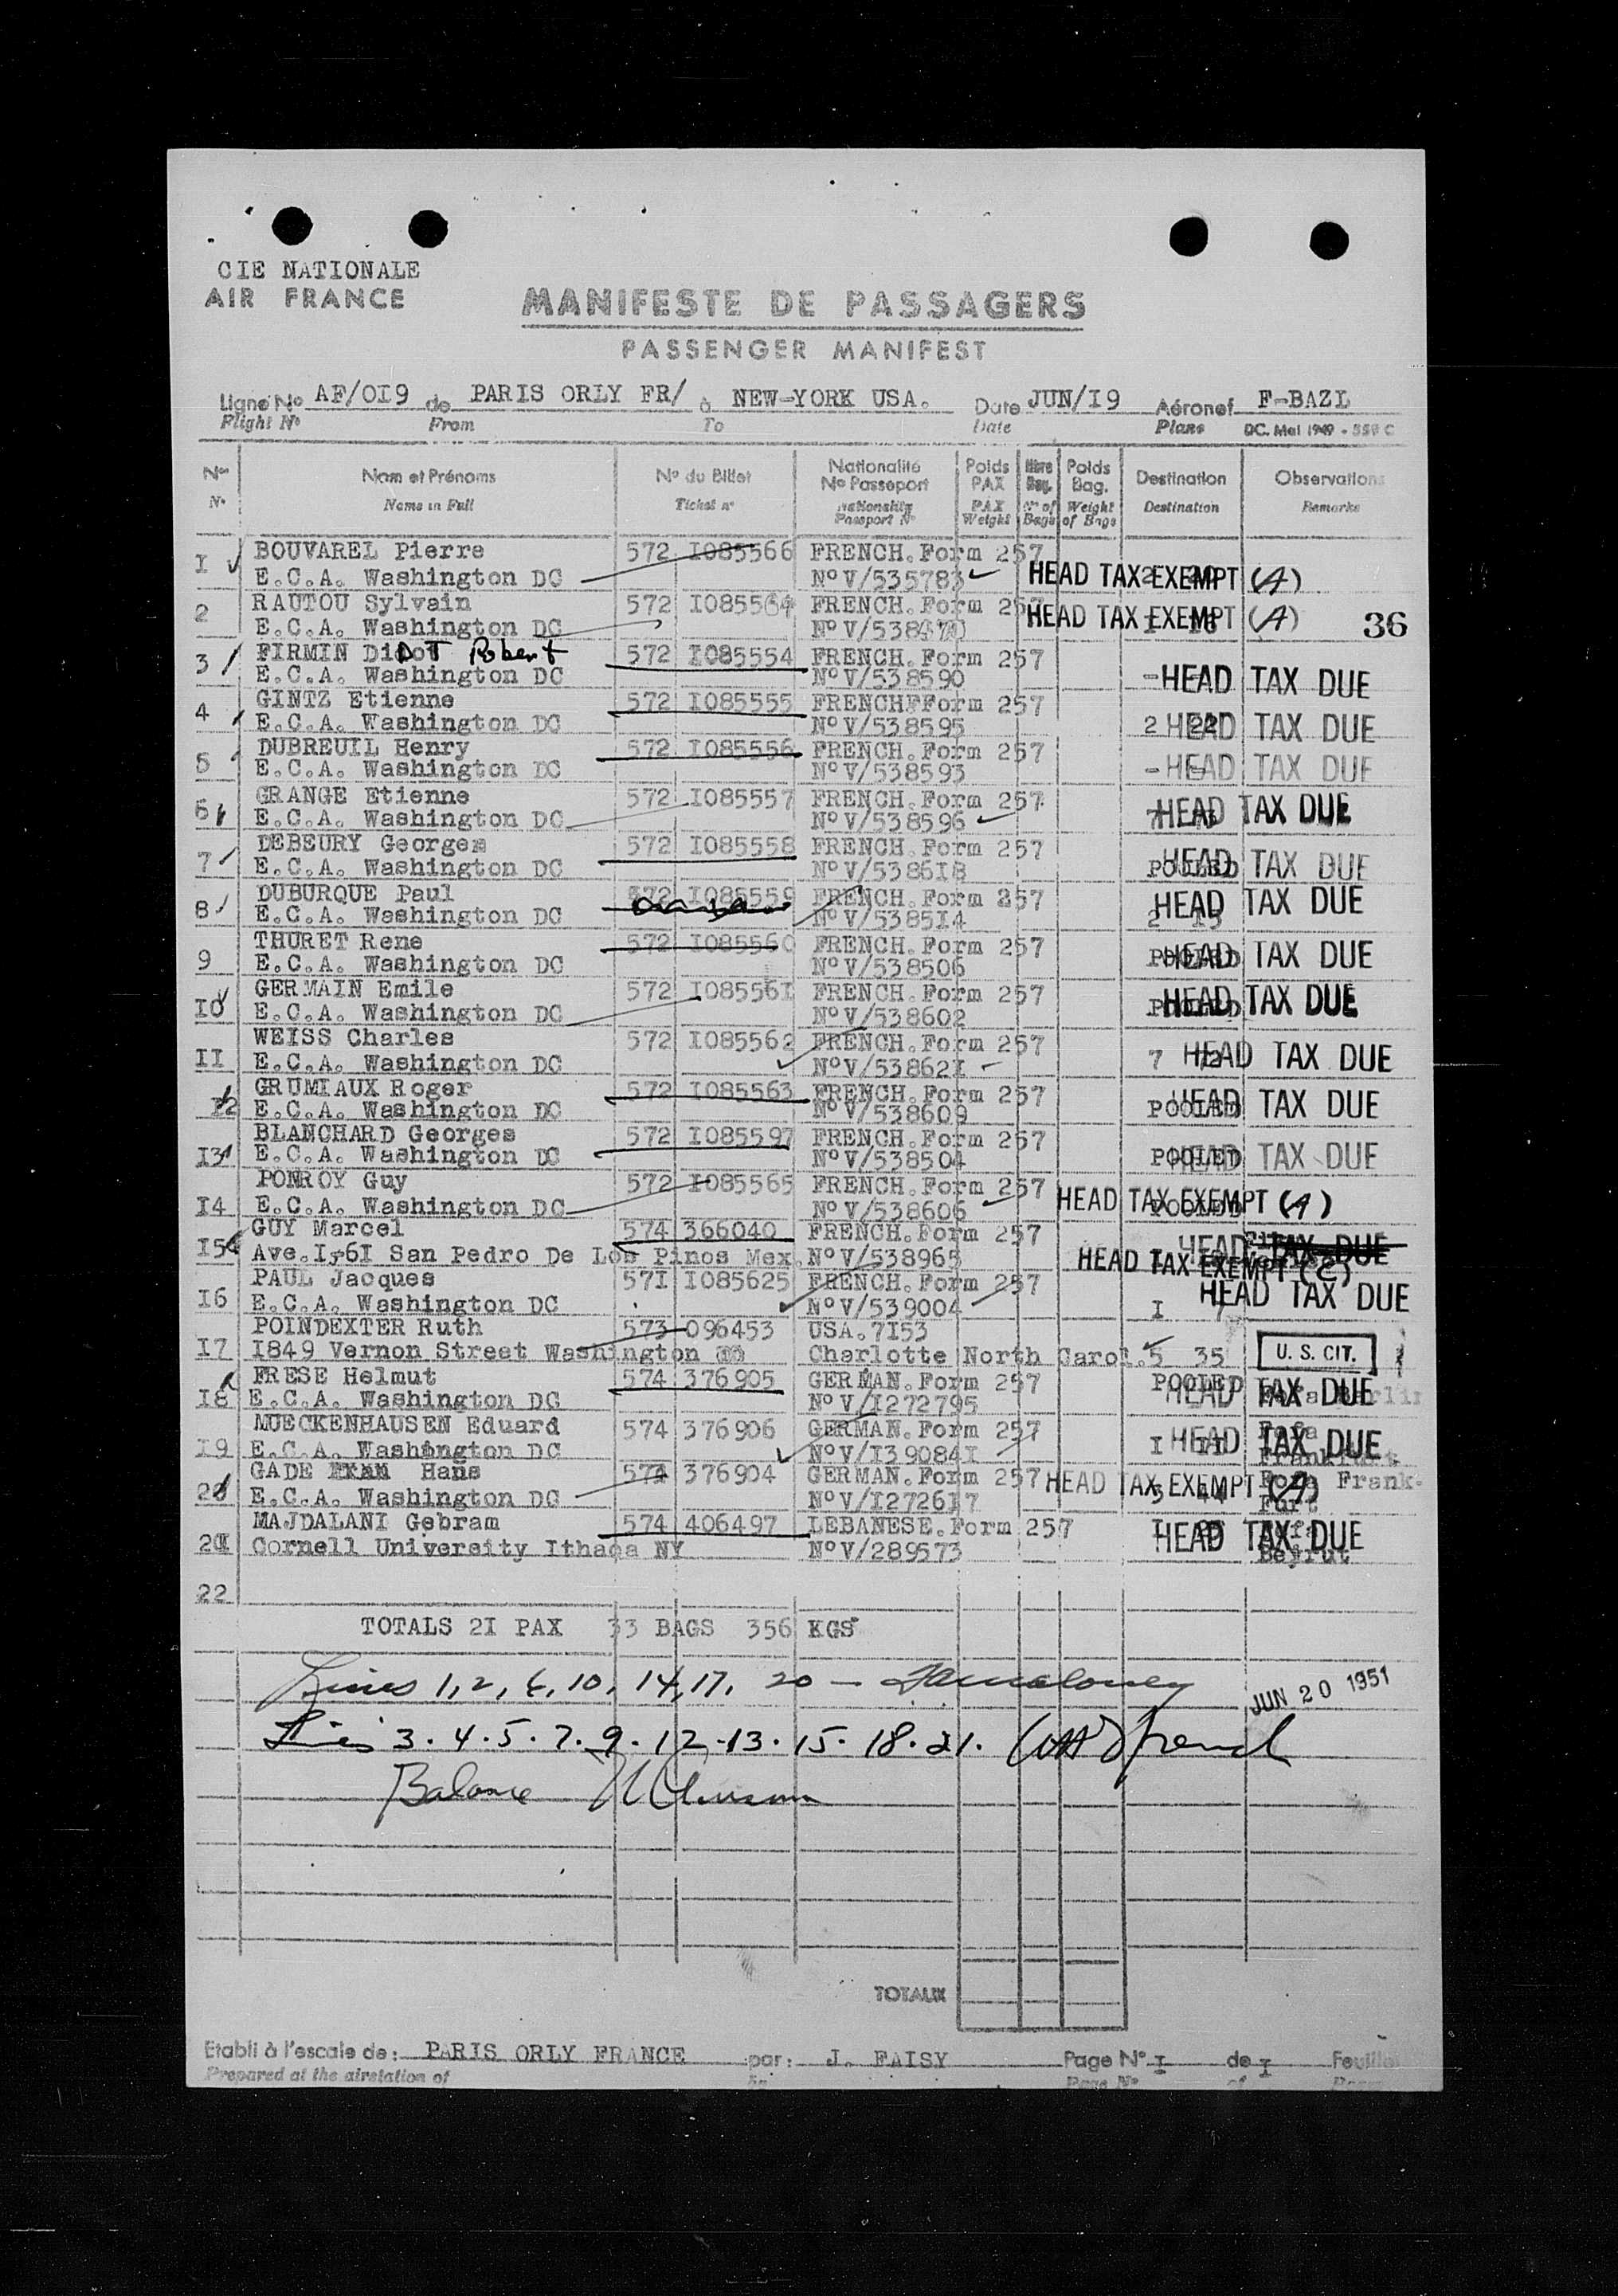 CIE NATIONALE
AIR FRANCE
MANIFESTE DE PASSAGERS
PASSENGER MANIFEST
Ligne No AF/OI9 de PARIS ORLY FR/ à NEW-YORK USA. Date JUN/I9 Aéronef F-BAZL
Flight No From To Date Plane DC. Mai 1949 - 559 C
No Nom et Prénoms No du Billet Nationalité No Passeport Poids PAX Nbre Bag. Poids Bag. Destination Observations
N° Name in Full Ticket n° Nationality Passport N° PAX Weight N° of Bags Weight of Bags Destination Remarks
I BOUVAREL Pierre 572 I085566 FRENCH. Form 257
E.C.A. Washington DC NoV/535783 HEAD TAX EXEMPT (A)
2 RAUTOU Sylvain 572 I085564 FRENCH. Form 257
E.C.A. Washington DC HEAD TAX EXEMPT (A) 36
3 FIRMIN DiDOT Robert 572 I085554 FRENCH. Form 257
E.C.A. Washington DC NoV/538590 - HEAD TAX DUE
4 GINTZ Etienne 572 I085555 FRENCHFForm 257
E.C.A. Washington DC NoV/538595 2 22 HEAD TAX DUE
5 DUBREUIL Henry 572 I085556 FRENCH. Form 257
E.C.A. Washington DC NoV/538593 - HEAD TAX DUE
6 GRANGE Etienne 572 I085557 FRENCH. Form 257
E.C.A. Washington DC NoV/538596 HEAD TAX DUE
7 DEBEURY Georges 572 I085558 FRENCH. Form 257
E.C.A. Washington DC NoV/538618 POOLED HEAD TAX DUE
8 DUBURQUE Paul 572 I085559 FRENCH. Form 257
E.C.A. Washington DC NoV/538514 HEAD TAX DUE
9 THURET Rene 572 I085560 FRENCH. Form 257
E.C.A. Washington DC NoV/538506 POOLED HEAD TAX DUE
IO GERMAIN Emile 572 I085561 FRENCH. Form 257
E.C.A. Washington DC NoV/538602 POOLED HEAD TAX DUE
II WEISS Charles 572 I085562 FRENCH. Form 257
E.C.A. Washington DC NoV/53862I 7 HEAD TAX DUE
I2 GRUMIAUX Roger 572 I085563 FRENCH. Form 257
E.C.A. Washington DC NoV/538609 POOLED HEAD TAX DUE
I3 BLANCHARD Georges 572 I085597 FRENCH. Form 257
E.C.A. Washington DC NoV/538504 POOLED HEAD TAX DUE
I4 PONROY Guy 572 I085565 FRENCH. Form 257
E.C.A. Washington DC NoV/538606 HEAD TAX EXEMPT (A)
I5 GUY Marcel 574 366040 FRENCH. Form 257
Ave.I,6I San Pedro De Los Pinos Mex. NoV/538965 HEAD TAX DUE
HEAD TAX EXEMPT (C)
I6 PAUL Jacques 57I I085625 FRENCH. Form 257
E.C.A. Washington DC NoV/539004 I HEAD TAX DUE
I7 POINDEXTER Ruth 573 096453 USA. 7I53
I849 Vernon Street Washington Charlotte North Carol. 5 35 U. S. CIT.
I8 FRESE Helmut 574 376905 GERMAN. Form 257
E.C.A. Washington DC NoV/I272795 POOLED HEAD TAX DUE
I9 MUECKENHAUSEN Eduard 574 376906 GERMAN. Form 257
E.C.A. Washington DC NoV/I39084I I HEAD TAX DUE Frankfurt
20 GADE Hans 574 376904 GERMAN. Form 257
E.C.A. Washington DC NoV/I272617 HEAD TAX EXEMPT (A) Frank-
Furt
2I MAJDALANI Gebram 574 406497 LEBANESE. Form 257
Cornell University Ithaca NY NoV/289573 HEAD TAX DUE
Beyrut
22
TOTALS 2I PAX 33 BAGS 356 KGS
Lines 1, 2, 6, 10, 14, 17, 20 —
JUN 20 1951
Lines 3. 4. 5. 7. 9. 12. 13. 15. 18. 21.
Balance
TOTAUX
Etabli à l'escale de: PARIS ORLY FRANCE par: J. FAISY Page N° I de I Feuille
Prepared at the airstation of